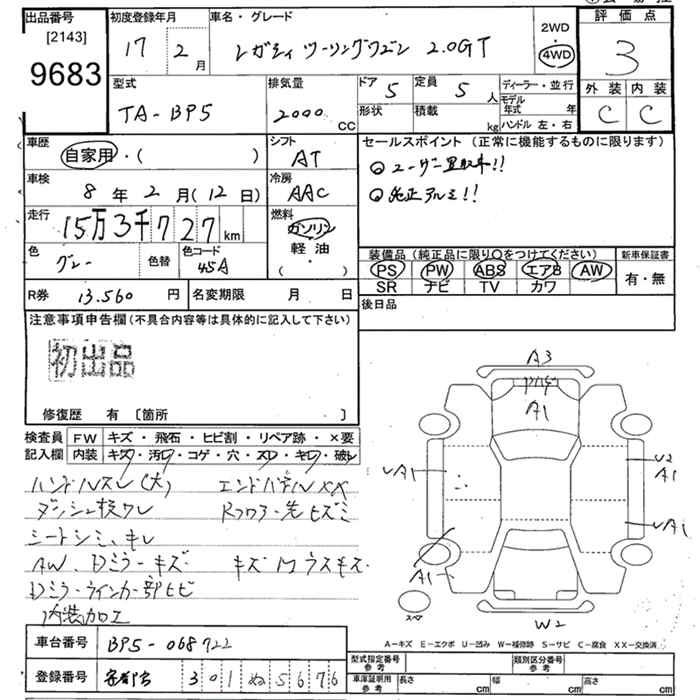 出品番号
[2143]
9683
初度登録年月
17 2月
車名・グレード
レガシィ ツーリングワゴン 2.0GT
2WD
4WD
評価点
3
外装 内装
C C
型式
TA-BP5
排気量
2000 CC
ドア 5
定員 5人
形状
積載 kg
ディーラー・並行
モデル年式 年
ハンドル 左・右
車歴
自家用・( )
シフト
AT
セールスポイント (正常に機能するものに限ります)
ユーザー買取車!!
純正アルミ!!
車検
8年 2月(12日)
冷房
AAC
走行
15万3千727km
燃料
ガソリン
軽油
( ・ )
色
グレー
色替
色コード
45A
装備品 (純正品に限り○をつけてください)
PS PW ABS エアB AW
SR ナビ TV カワ
新車保証書
有・無
R券 13,560円
名変期限 月 日
後日品
注意事項申告欄 (不具合内容等は具体的に記入して下さい)
初出品
修復歴 有 〔箇所 〕
検査員記入欄
FW キズ・飛石・ヒビ割・リペア跡・×要
内装 キズ・汚レ・コゲ・穴・スレ・キレ・破レ
ハンドルスレ(大) エンドパネルXX
ダッシュ
シートシミ、キレ
AW、Dミラーキズ
Dミラーウインカー部ヒビ
内装加工
A3
A1
A1
U2
A1
A1
A1
W2
スペア
A-キズ E-エクボ U-凹み W-補修跡 S-サビ C-腐食 XX-交換済
車台番号 BP5-068722
登録番号 301 ぬ 5676
型式指定番号 参考
類別区分番号 参考
車庫証明用 参考
長さ cm
幅 cm
高さ cm